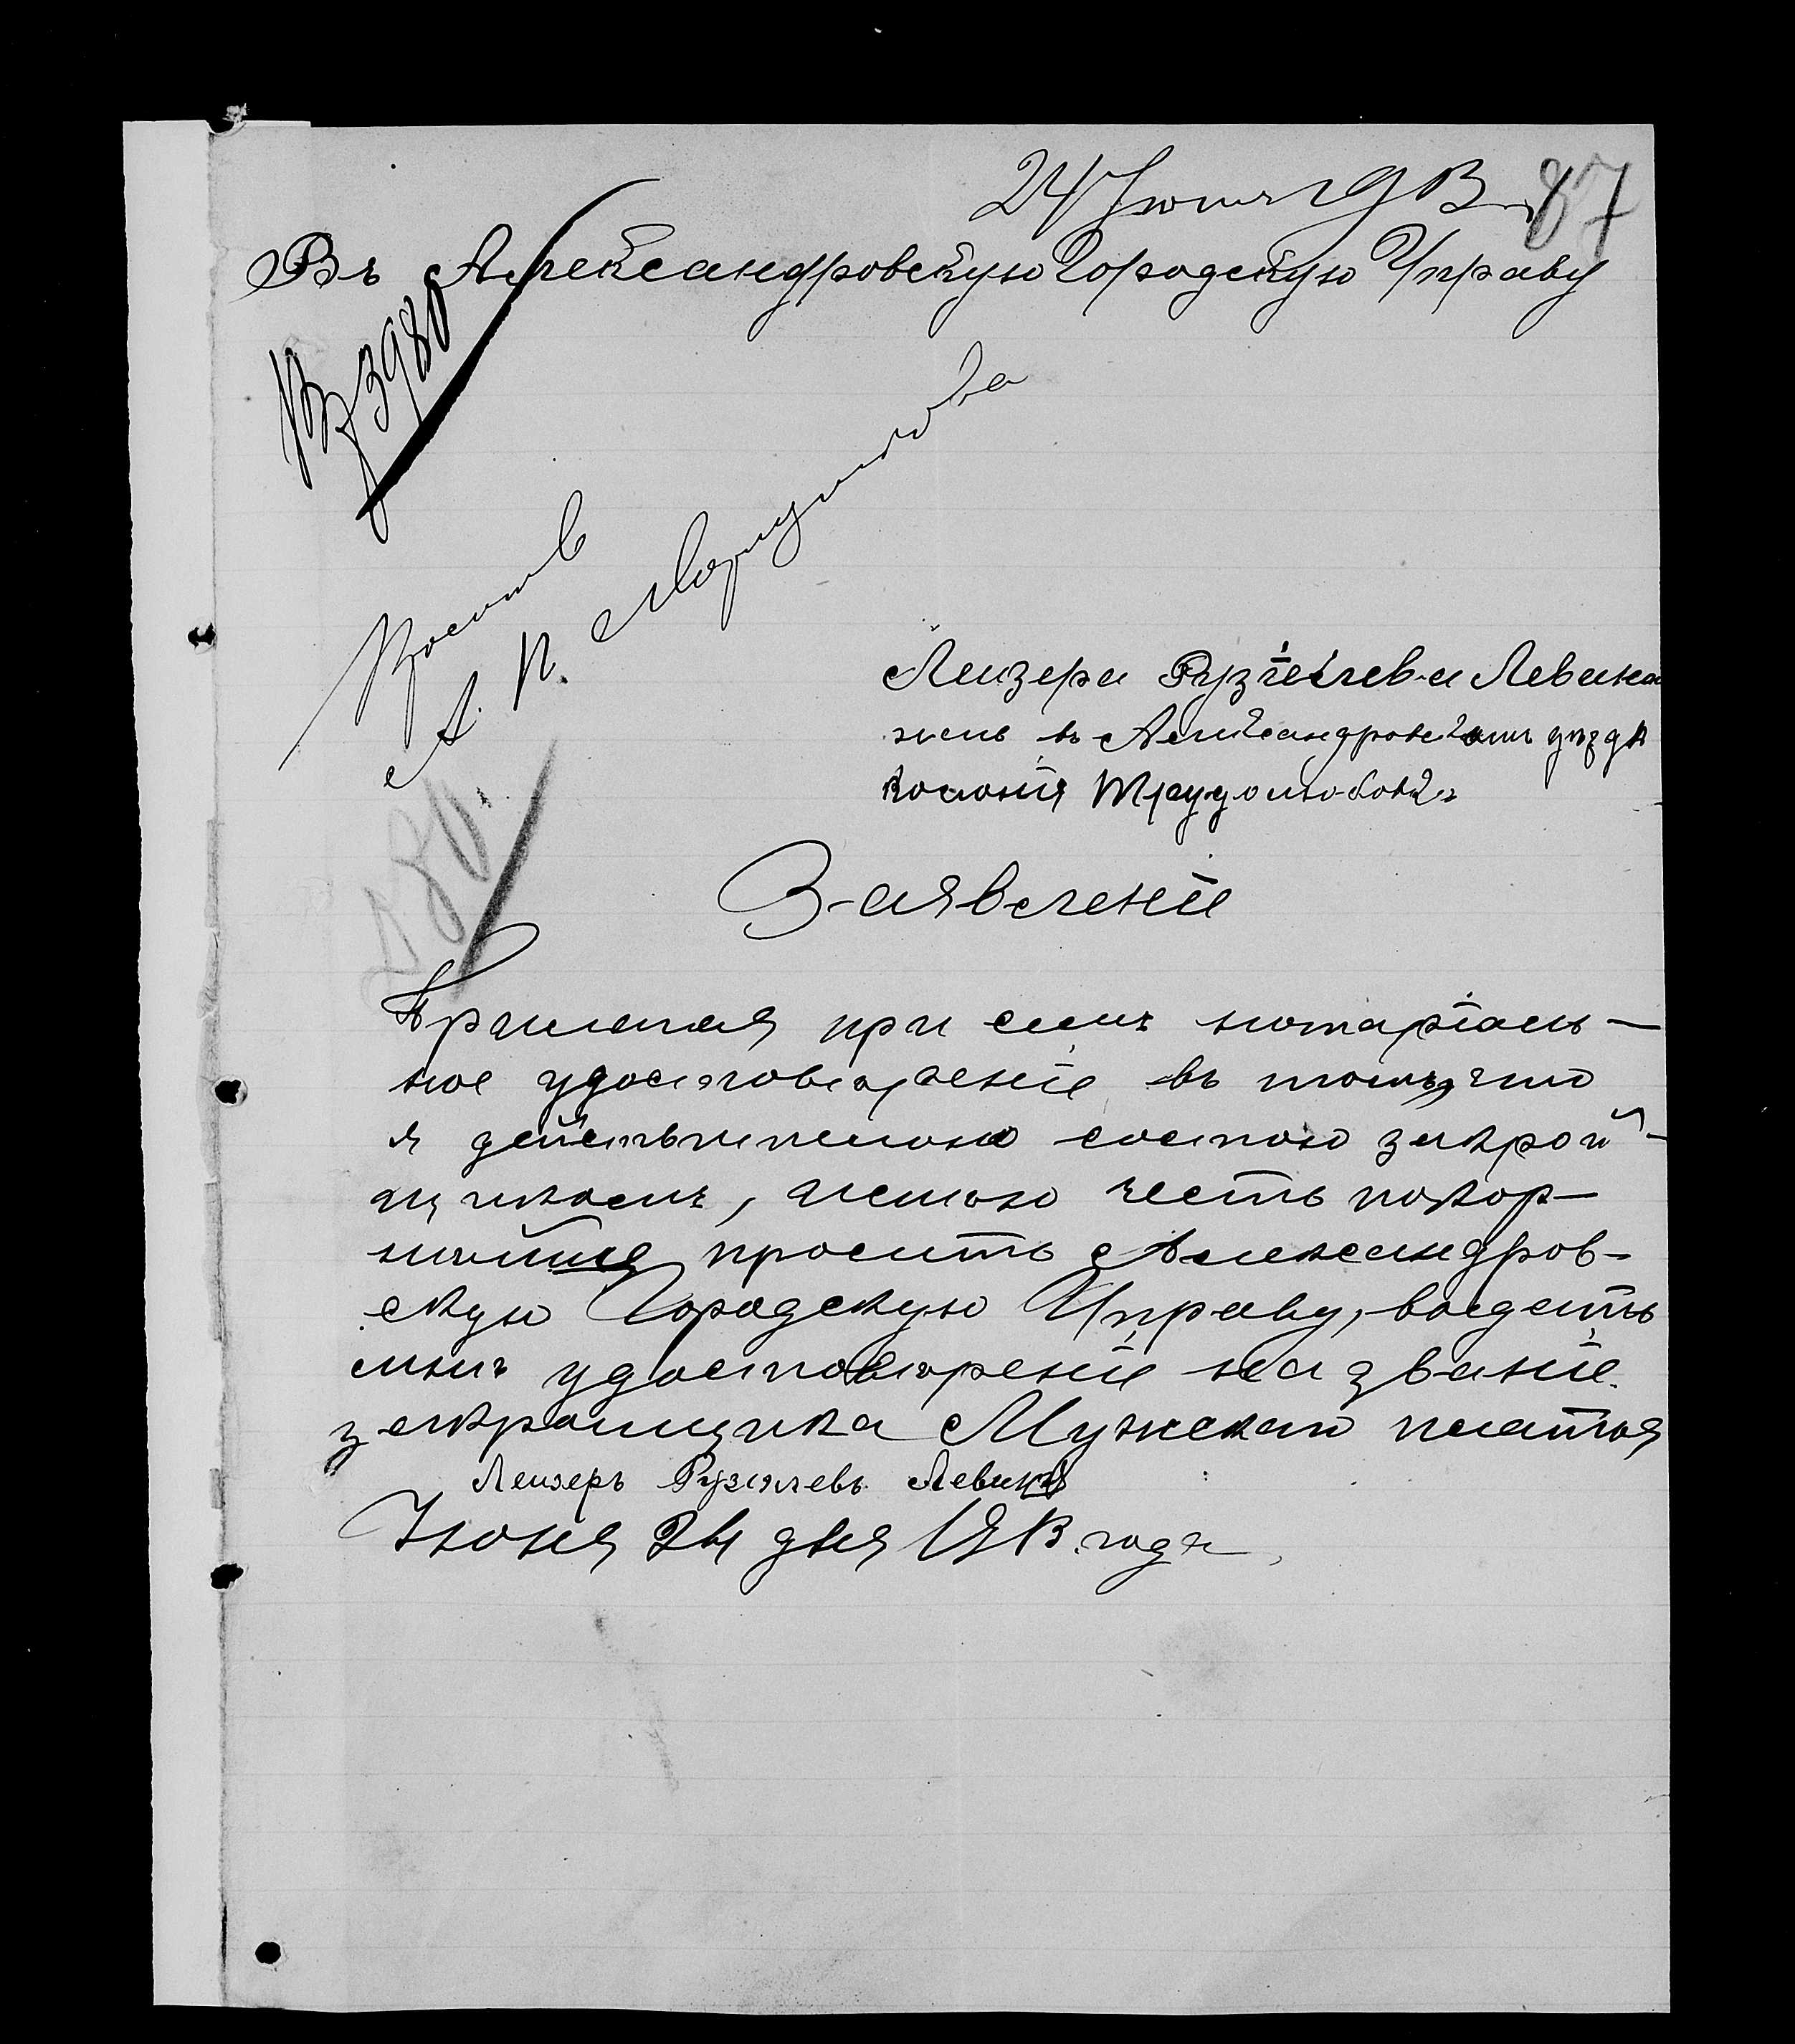 24 Іюня 1913 г. 87
Въ Александровскую Городскую Управу
Вх 3980
А. П. Марцинкова
Лейзера Рузилева Левина
жив въ Александровскомъ уѣздѣ
Колонія Трудолюбовка
Заявленіе
Прилагая при семъ нотаріаль-
ное удостовѣреніе въ томъ, что
я действительно состою закрой-
щикомъ, имѣю честь покор-
нейше просить Александров-
скую Городскую Управу, выдать
мнѣ удостовѣреніе на званіе
закройщика Мужскаго платья
Лейзеръ Рузилевъ Левинъ
Іюня 24 дня 1913 года